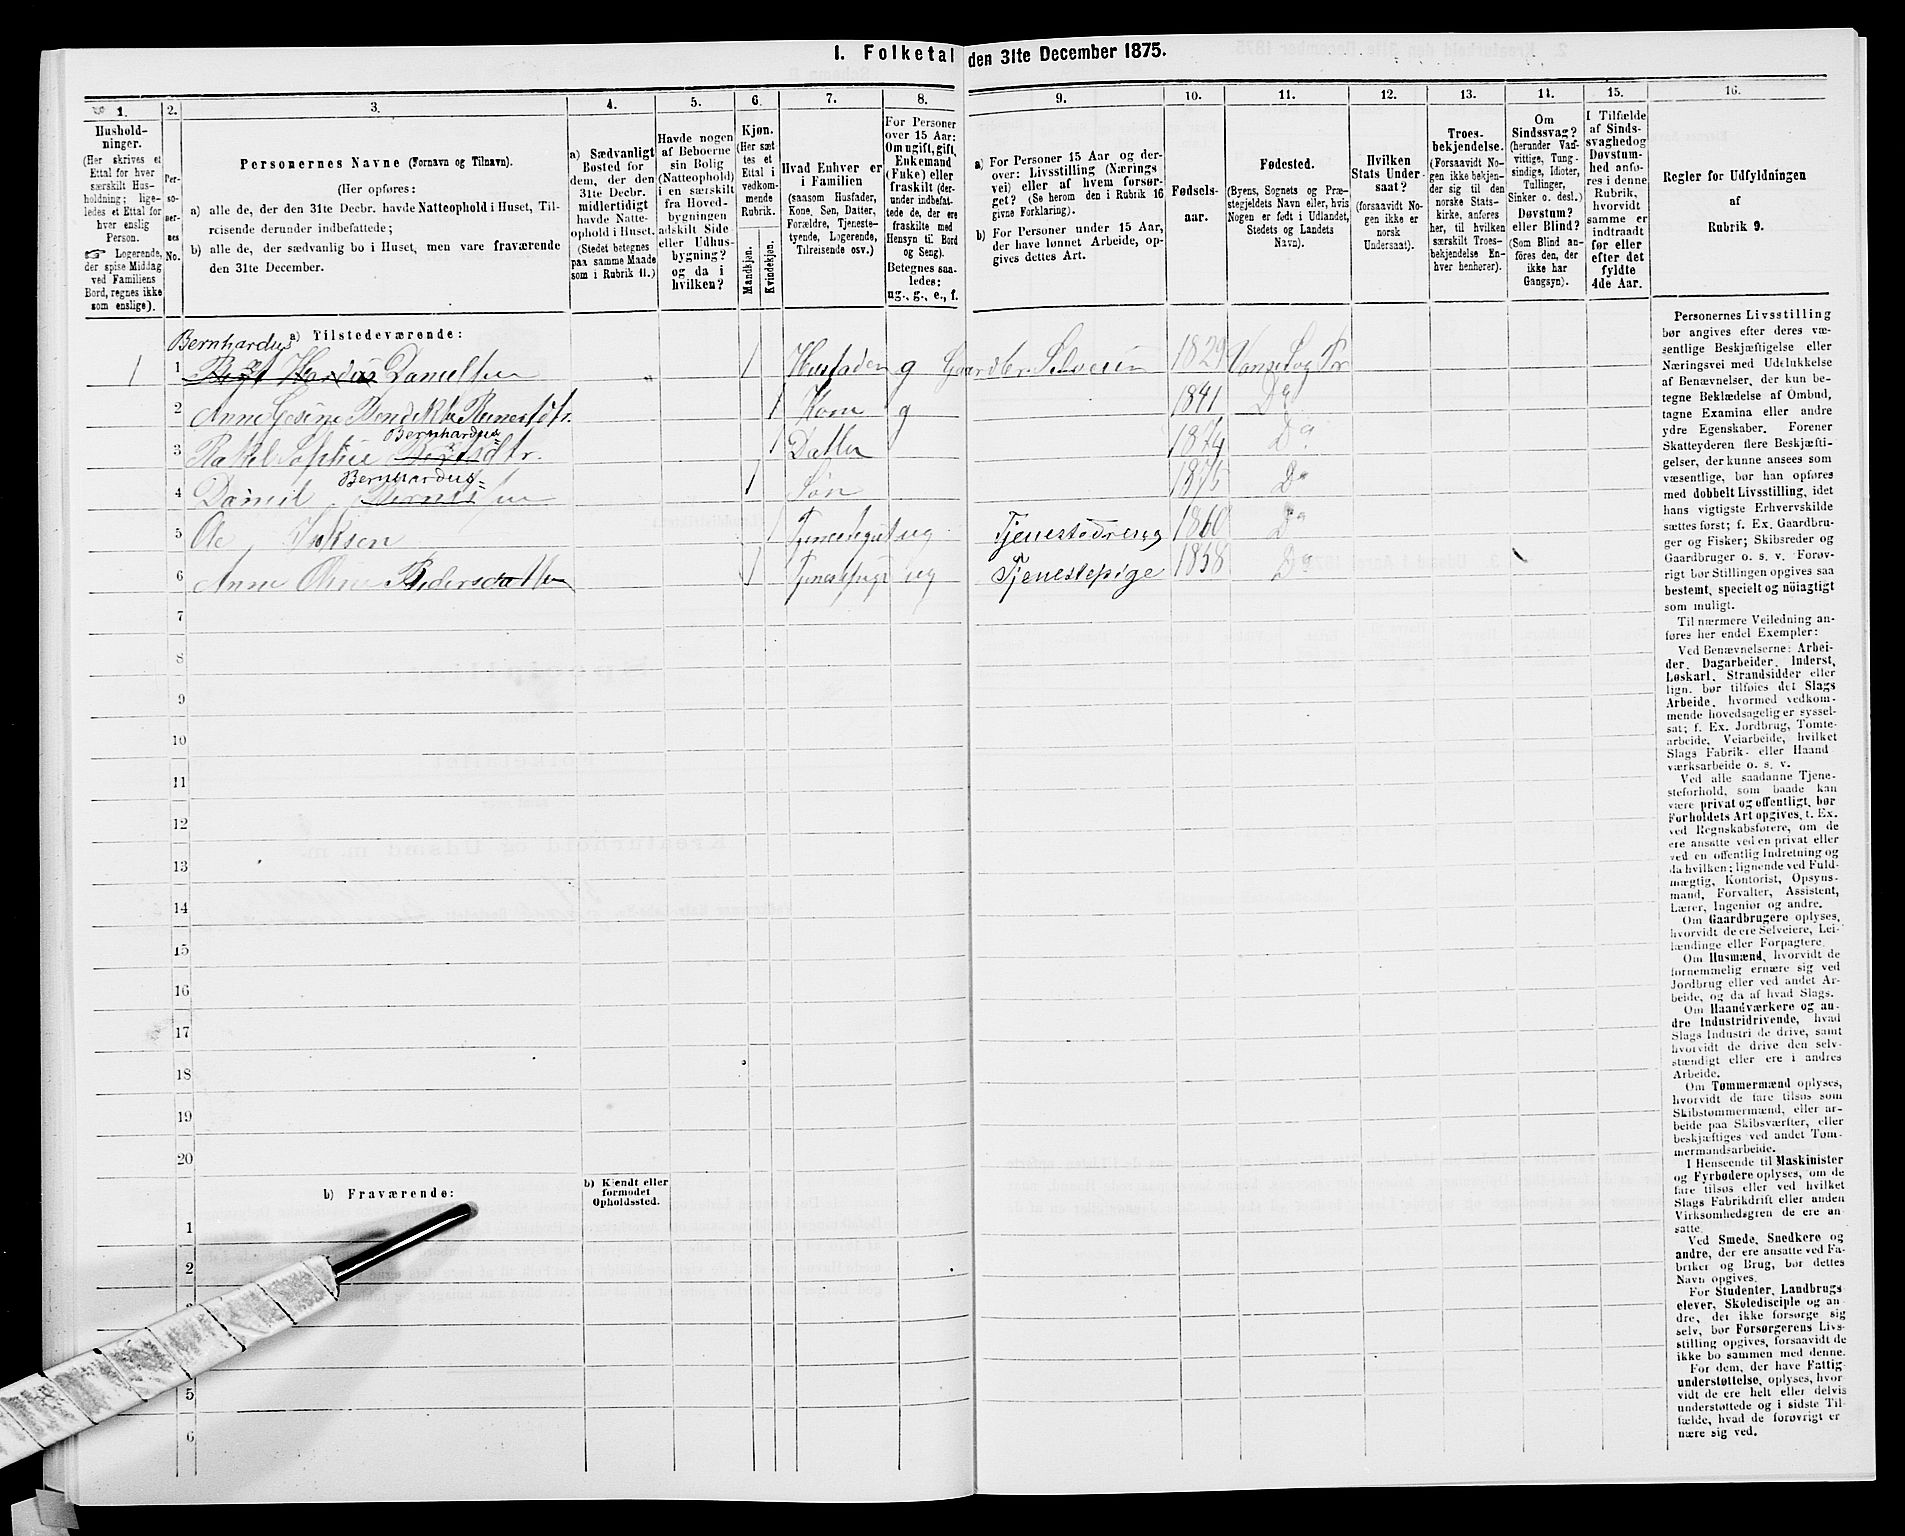 1. Folketal den 31te December 1875.
1. 2. 3. 4. 5. 6. 7. 8. 9. 10. 11. 12. 13. 14. 15. 16.
Hushold-
ninger.
(Her skrives et
Ettal for hver
særskilt Hus-
holdning; lige-
ledes et Ettal for
hver enslig
Person.
☞ Logerende,
der spise Middag
ved Familiens
Bord, regnes ikke
som enslige).
Per-
so-
ner-
nes
No.
Personernes Navne (Fornavn og Tilnavn).
(Her opføres:
a) alle de, der den 31te Decbr. havde Natteophold i Huset, Til-
reisende derunder indbefattede;
b) alle de, der sædvanlig bo i Huset, men vare fraværende
den 31te December.
a) Sædvanligt
Bosted for
dem, der den
31te Decbr.
midlertidigt
havde Natte-
ophold i Huset.
(Stedet betegnes
paa samme Maade
som i Rubrik 11.)
Havde nogen
af Beboerne
sin Bolig
(Natteophold)
i en særskilt
fra Hoved-
bygningen
adskilt Side-
eller Udhus-
bygning?
og da i
hvilken?
Kjøn.
(Her sæt-
tes et
Ettal i
vedkom-
mende
Rubrik.
Mandkjøn.
Kvindekjøn.
Hvad Enhver er
i Familien
(saasom Husfader,
Kone, Søn, Datter,
Forældre, Tjeneste-
tyende, Logerende,
Tilreisende osv.)
For Personer
over 15 Aar:
Om ugift, gift,
Enkemand
(Enke) eller
fraskilt (der-
under indbefat-
tede de, der ere
fraskilte med
Hensyn til Bord
og Seng).
Betegnes saa-
ledes:
ug., g., e., f.
a) For Personer 15 Aar og der-
over: Livsstilling (Nærings-
vei) eller af hvem forsør-
get? (Se herom den i Rubrik 16
givne Forklaring).
b) For Personer under 15 Aar,
der have lønnet Arbeide, op-
gives dettes Art.
Fødsels-
aar.
Fødested.
(Byens, Sognets og Præ-
stegjeldets Navn eller, hvis
Nogen er født i Udlandet,
Stedets og Landets
Navn).
Hvilken
Stats Under-
saat?
(forsaavidt No-
gen ikke er
norsk
Undersaat).
Troes-
bekjendelse.
(Forsaavidt No-
gen ikke bekjen-
der sig til den
norske Stats-
kirke, anføres
her, til hvilken
særskilt Troes-
bekjendelse En-
hver henhører).
Om
Sindssvag?
(herunder Van-
vittige, Tung-
sindige, Idioter,
Tullinger,
Sinker o. desl.)
Døvstum?
eller Blind?
(Som Blind an-
føres den, der
ikke har
Gangsyn).
I Tilfælde
af Sinds-
svaghed og
Døvstum-
hed anfø-
res i denne
Rubrik,
hvorvidt
samme er
indtraadt
før eller
efter det
fyldte
4de Aar.
Regler for Udfyldningen
af
Rubrik 9.
a) Tilstedeværende:
Bernhardus
1 1 Danielsen 1 Husfader g Gaardbr. Selveier 1829 Vanse S og Pr
2 Anne Gesine Bendikte Reinertsdtr. 1 Kone g 1841 Do
Bernhardus
3 Rakel Sophie dtr. 1 Datter 1874 Do
Bernhardus
4 Daniel sen 1 Søn 1875 Do
5 Ole 1 ug Tjenestedreng 1860 Do
6 Anne Oline Pedersdatter 1 ug Tjenestepige 1858 Do
7
8
9
10
11
12
13
14
15
16
17
18
19
20
b) Fraværende:
b) Kjendt eller
formodet
Opholdssted.
1
2
5
6
Personernes Livsstilling
bør angives efter deres væ-
sentlige Beskjæftigelse eller
Næringsvei med Udelukkelse
af Benævnelser, der kun be-
tegne Beklædelse af Ombud,
tagne Examina eller andre
ydre Egenskaber. Forener
Skatteyderen flere Beskjæfti-
gelser, der kunne ansees som
væsentlige, bør han opføres
med dobbelt Livsstilling, idet
hans vigtigste Erhvervskilde
sættes først; f. Ex. Gaardbru-
ger og Fisker; Skibsreder og
Gaardbruger o. s. v. Forøv-
rigt bør Stillingen opgives saa
bestemt, specielt og nöiagtigt
som muligt.
Til nærmere Veiledning an-
føres her endel Exempler:
Ved Benævnelserne: Arbei-
der, Dagarbeider, Inderst,
Løskarl, Strandsidder eller
lign. bør tilføies det Slags
Arbeide, hvormed vedkom-
mende hovedsagelig er syssel-
sat; f. Ex. Jordbrug, Tomte-
arbeide, Veiarbeide, hvilket
Slags Fabrik- eller Haand-
værksarbeide o. s. v.
Ved alle saadanne Tjene-
steforhold, som baade kan
være privat og offentligt, bør
Forholdets Art opgives, t. Ex.
ved Regnskabsførere, om de
ere ansatte ved en privat eller
ved en offentlig Indretning og
da hvilken; lignende ved Fuld-
mægtig, Kontorist, Opsyns-
mand, Forvalter, Assistent,
Lærer, Ingeniør og andre.
Om Gaardbrugere oplyses,
hvorvidt de ere Selveiere, Lei-
lændinge eller Forpagtere.
Om Husmænd, hvorvidt de
fornemmelig ernære sig ved
Jordbrug eller ved andet Ar-
beide, og da af hvad Slags.
Om Haandværkere og an-
dre Industridrivende, hvad
Slags Industri de drive, samt
hvorvidt de drive den selv-
stændigt eller ere i andres
Arbeide.
Om Tømmermænd oplyses,
hvorvidt de fare tilsøs som
Skibstømmermænd, eller ar-
beide paa Skibsværfter, eller
beskjæftiges ved andet Tøm-
mermandsarbeide.
I Henseende til Maskinister
og Fyrbødere oplyses, om de
fare tilsøs eller ved hvilket
Slags Fabrikdrift eller anden
Virksomhedsgren de ere an-
satte.
Ved Smede, Snedkere og
andre, der ere ansatte ved Fa-
briker og Brug, bør dettes
Navn opgives.
For Studenter, Landbrugs-
elever, Skoledisciple og an-
dre, der ikke forsørge sig
selv, bør Forsørgerens Livs-
stilling opgives, forsaavidt de
ikke bo sammen med denne.
For dem, der have Fattig-
understøttelse, oplyses, hvor-
vidt de ere helt eller delvis
understøttede og i sidste Til-
fælde, hvad de forøvrigt er-
nære sig ved.